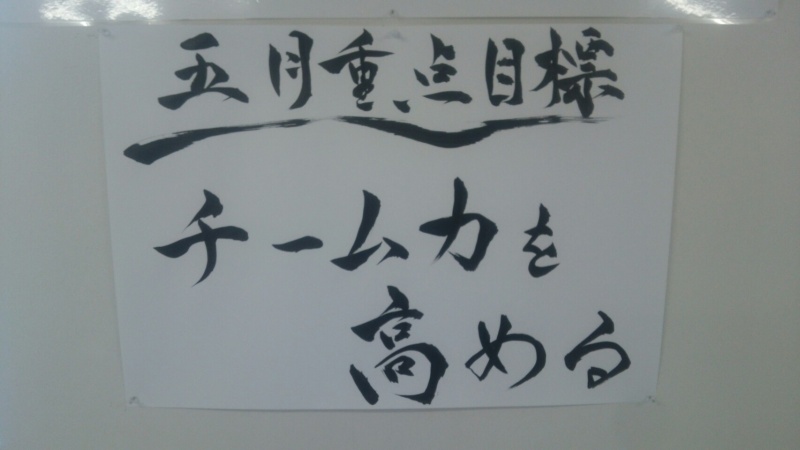 五月重点目標
チーム力を
高める